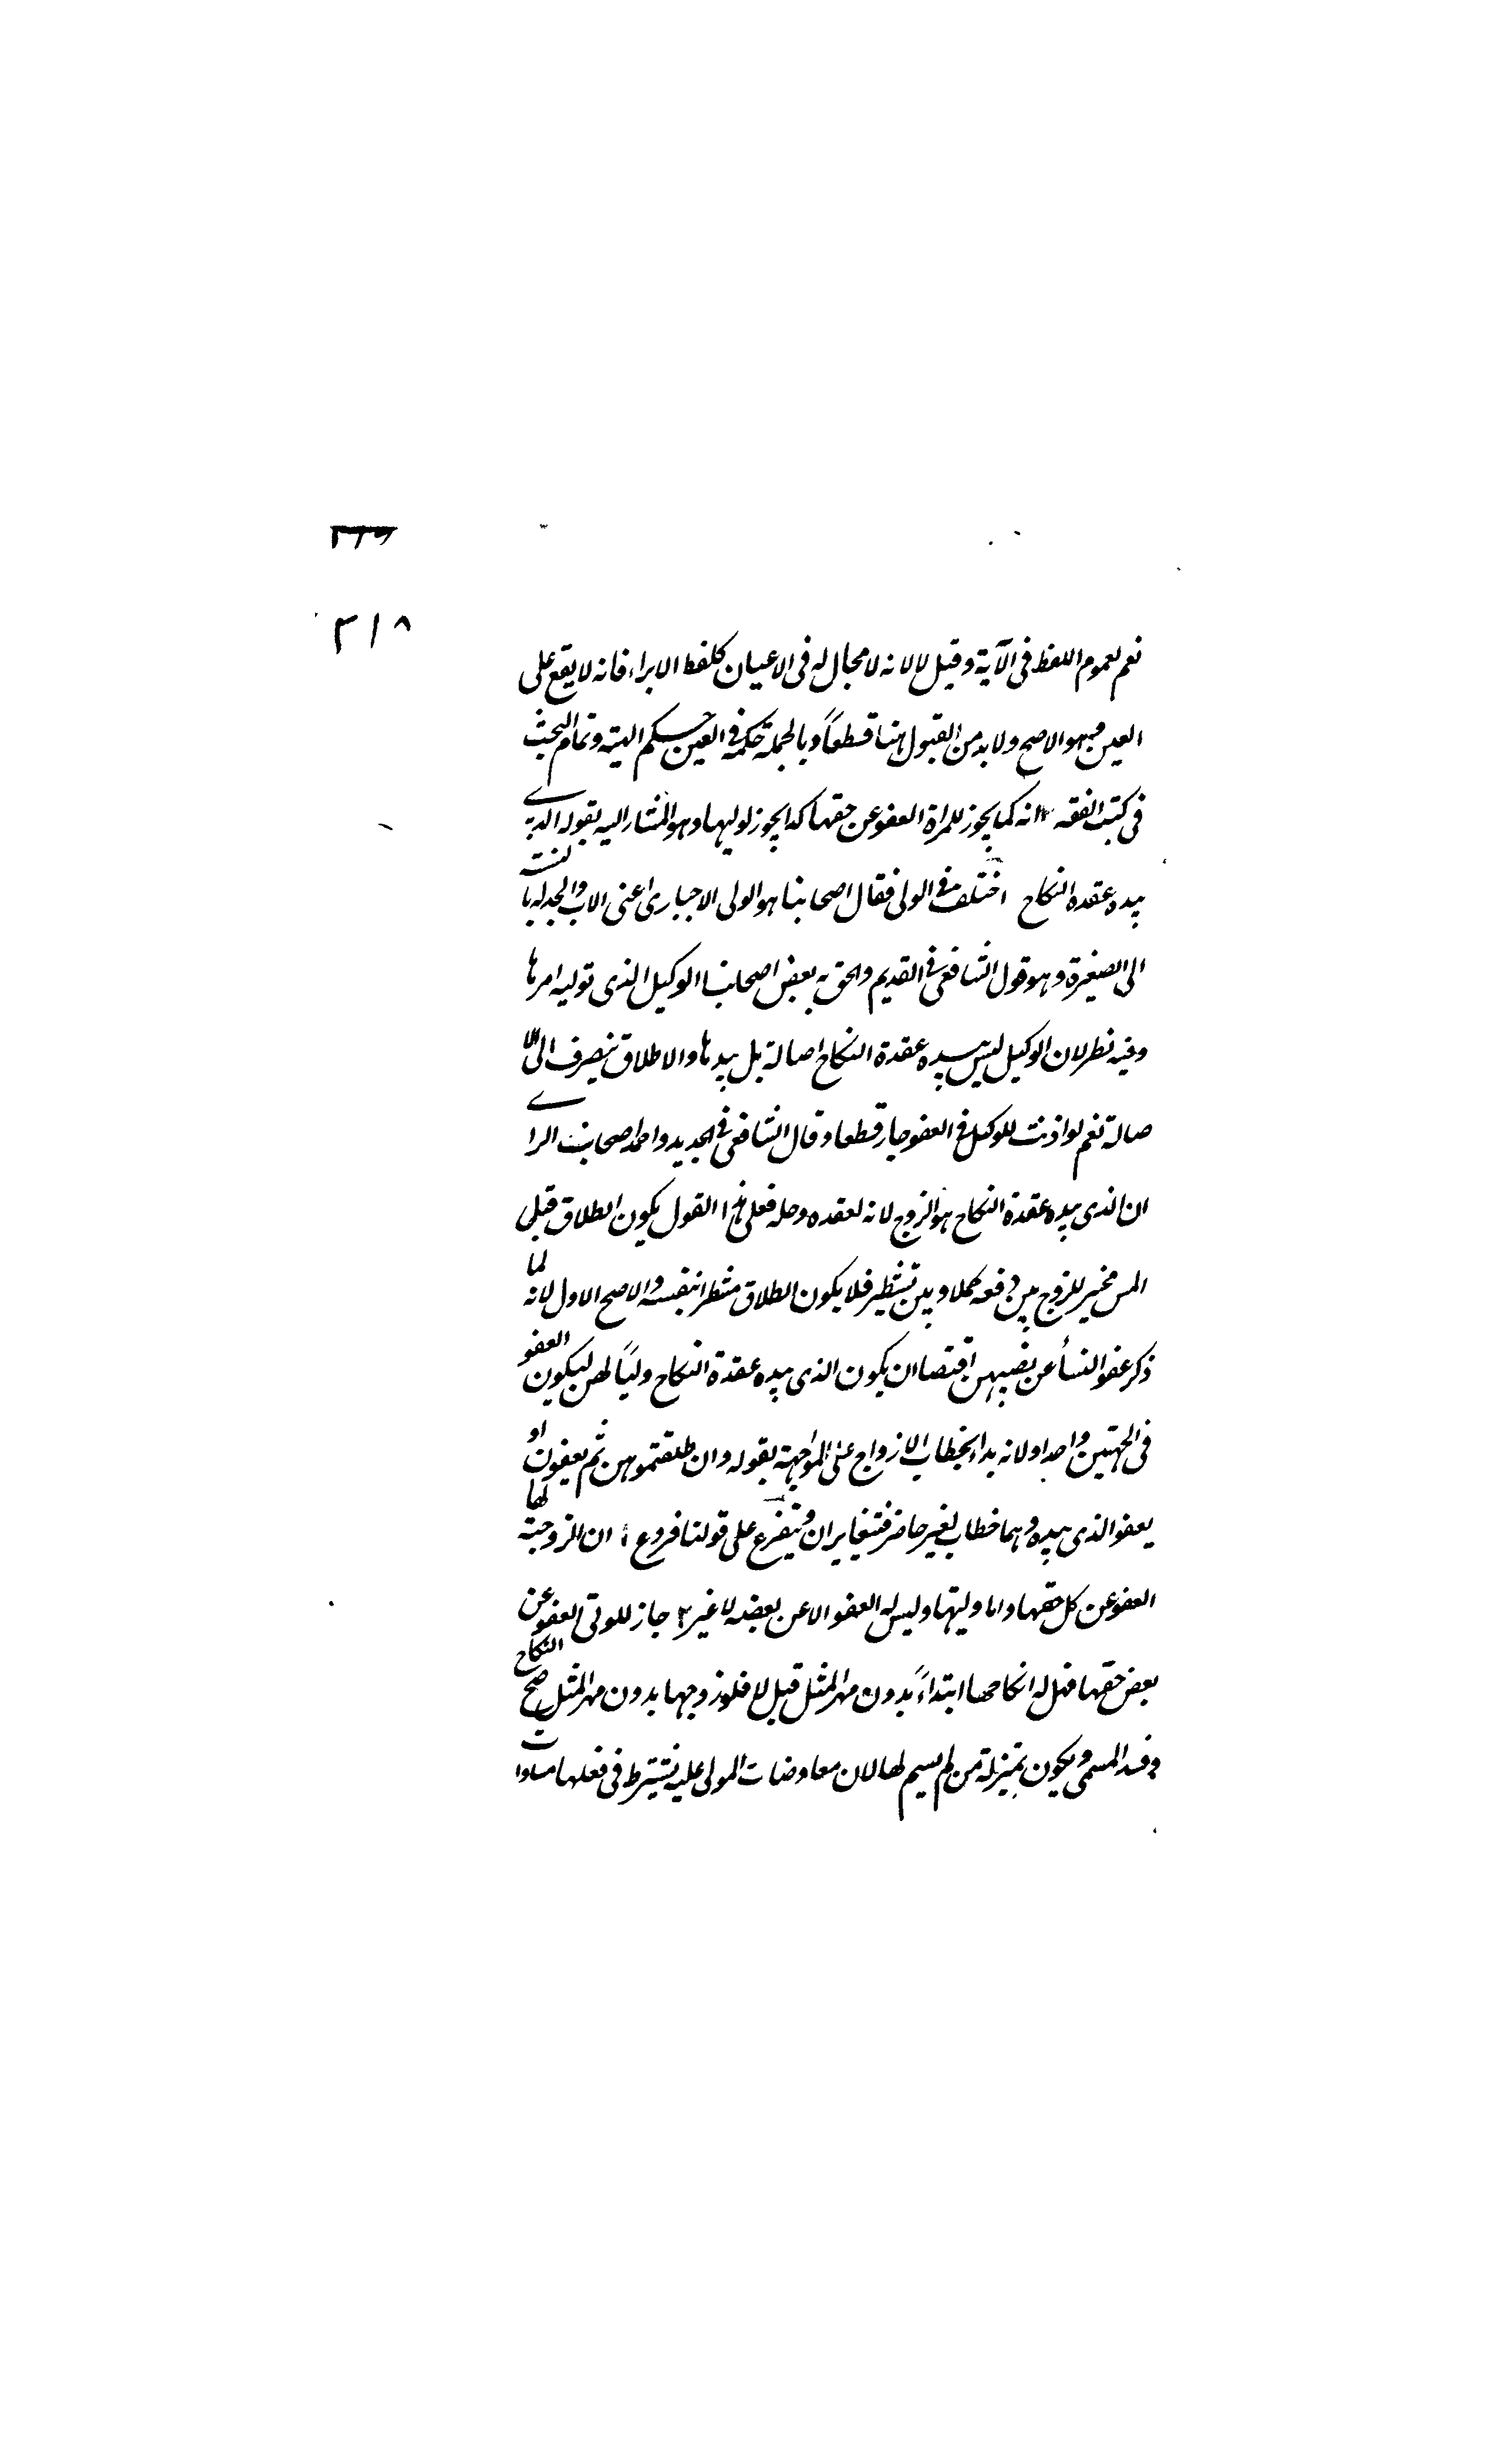 ٣١٩
٣١٨
نعم لعموم اللفظ فى الآية وقيل لا لانه لا مجال له فى الاعيان كلفظ الابراء فانه لا يقع على
العين وهو الاصح ولا بد من القبول هنا قطعاً وبالجملة حكمه فى العين حكم الهبة وتمام البحث
فى كتب الفقه ٣ انه كما يجوز للمراة العفو عن حقها كذا يجوز لوليها وهو المشار اليه بقوله الذى
بيده عقدة النكاح اختلف فى الولى فقال اصحابنا هو الولى الاجبارى اعنى الاب والجد له بالنسبة
الى الصغيرة وهو قول الشافعى فى القديم والحق به بعض اصحابنا الوكيل الذى توليه امرها
وفيه نظر لان الوكيل ليس بيده عقدة النكاح اصالة بل بيدها والاطلاق ينصرف الى الا
صالة نعم لو اذنت للوكيل فى العفو جاز قطعا وقال الشافعى فى الجديد واحمد اصحاب الراى
ان الذى بيده عقدة النكاح هو الزوج لانه لعقده وحله فعلى هذا القول يكون الطلاق قبل
المس مخير للزوج بين دفعه كملا وبين تشطير فلا يكون الطلاق مشطرا بنفسه والاصح الاول لانه لما
ذكر عفو النسأ عن نصيبهن اقتضا ان يكون الذى بيده عقدة النكاح ولياً لهن ليكون العفو
فى الجهتين واحدا ولانه بدا بخطاب الازواج على المواجهة بقوله وان طلقتموهن ثم يعفون او
يعفو الذى بيده وهما خطاب لغير حاضر فتغايران ويتفرع على قولنا فروع ١ ان الزوجة لها
العفو عن كل حقها واما وليها وليس له العفو الا عن بعضه لا غير ٢ جاز للولى العفو عن
بعض حقها فهل له انكاحها ابتداءً بدون مهر المثل قيل لا فلو زوجها بدون مهر المثل صح النكاح
وفسد المسمى ويكون بمنزلة من لم يسم لها لان معاوضات المولى عليه تشترط فى فعلها مساوات